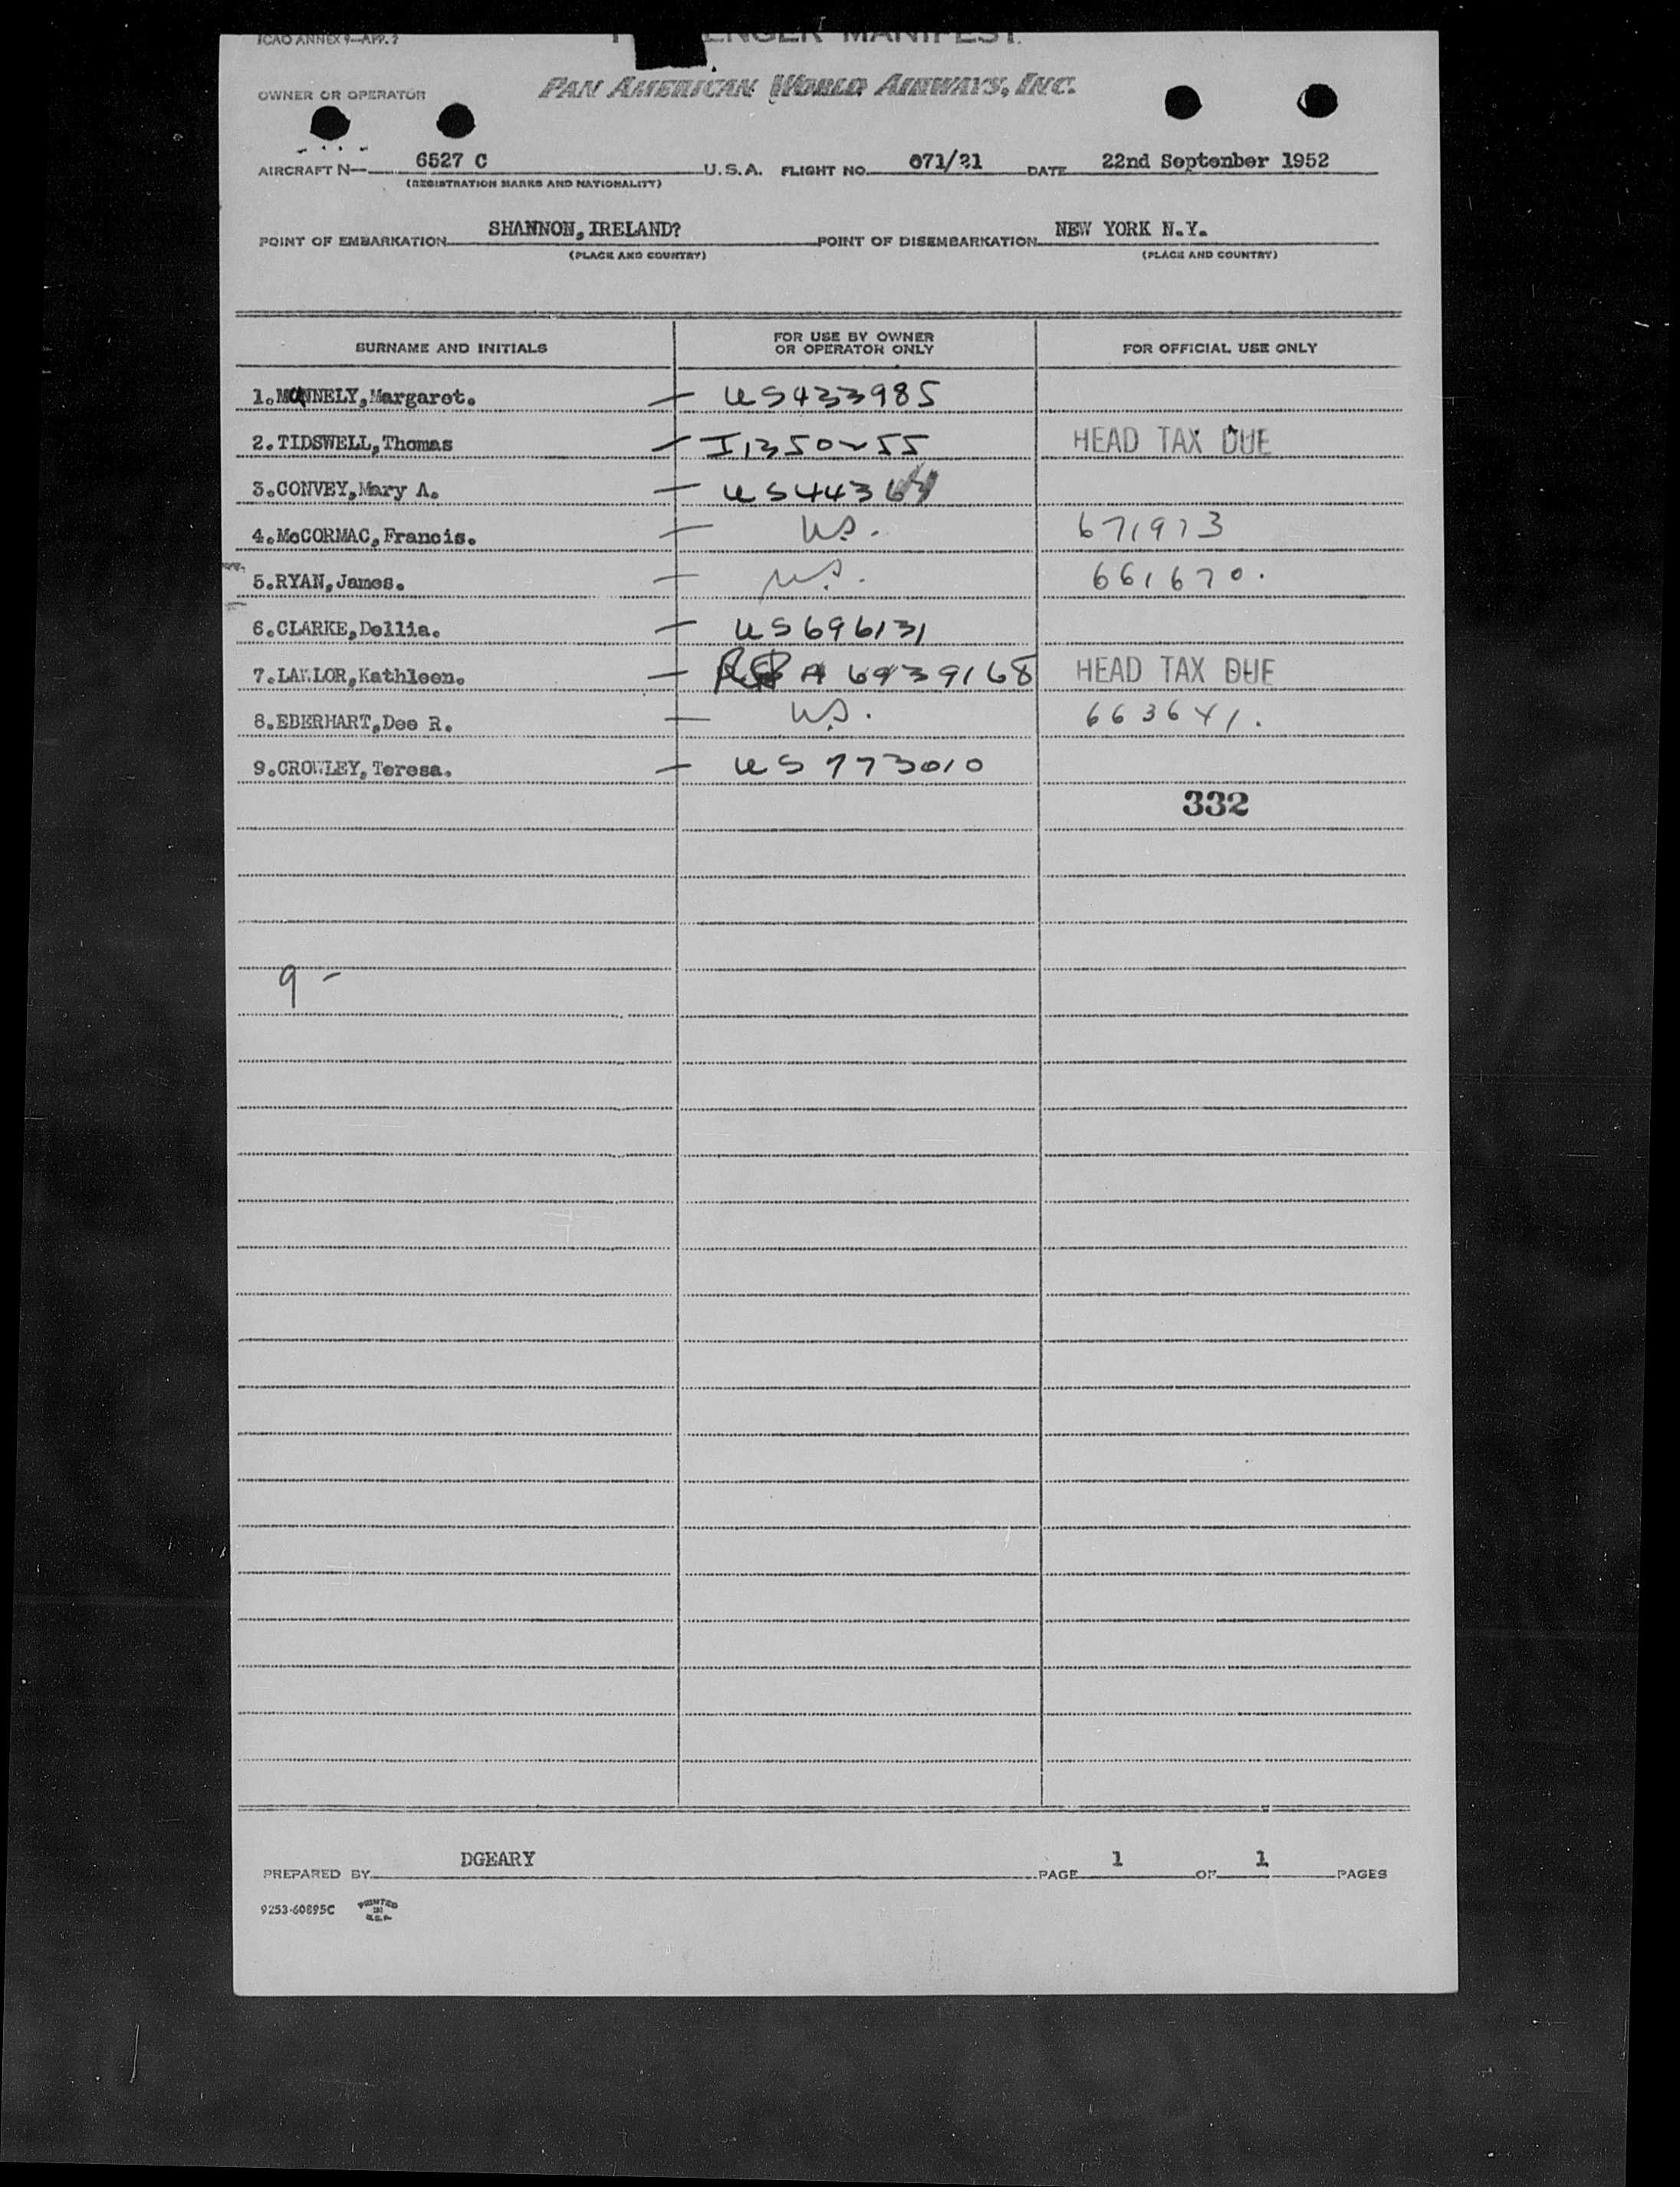 ICAO ANNEX 9—APP. 2
ENGER MANIFEST
OWNER OR OPERATOR PAN AMERICAN WORLD AIRWAYS, INC.
AIRCRAFT N— 6527 C U.S.A. FLIGHT NO. 071/21 DATE 22nd September 1952
(REGISTRATION MARKS AND NATIONALITY)
POINT OF EMBARKATION SHANNON, IRELAND? POINT OF DISEMBARKATION NEW YORK N.Y.
(PLACE AND COUNTRY) (PLACE AND COUNTRY)
SURNAME AND INITIALS FOR USE BY OWNER OR OPERATOR ONLY FOR OFFICIAL USE ONLY
1.MANNELY, Margaret. — US433985
2.TIDSWELL, Thomas — I1350255 HEAD TAX DUE
3.CONVEY, Mary A. —
4.McCORMAC, Francis. — U.S. 671973
5.RYAN, James. — U.S. 661670.
6.CLARKE, Dellia. — US696131
7.LAWLOR, Kathleen. — A 6939168 HEAD TAX DUE
8.EBERHART, Dee R. — U.S. 663641.
9.CROWLEY, Teresa. — US 773010
332
9 -
PREPARED BY DGEARY PAGE 1 OF 1 PAGES
9253-60895C PRINTED IN U.S.A.